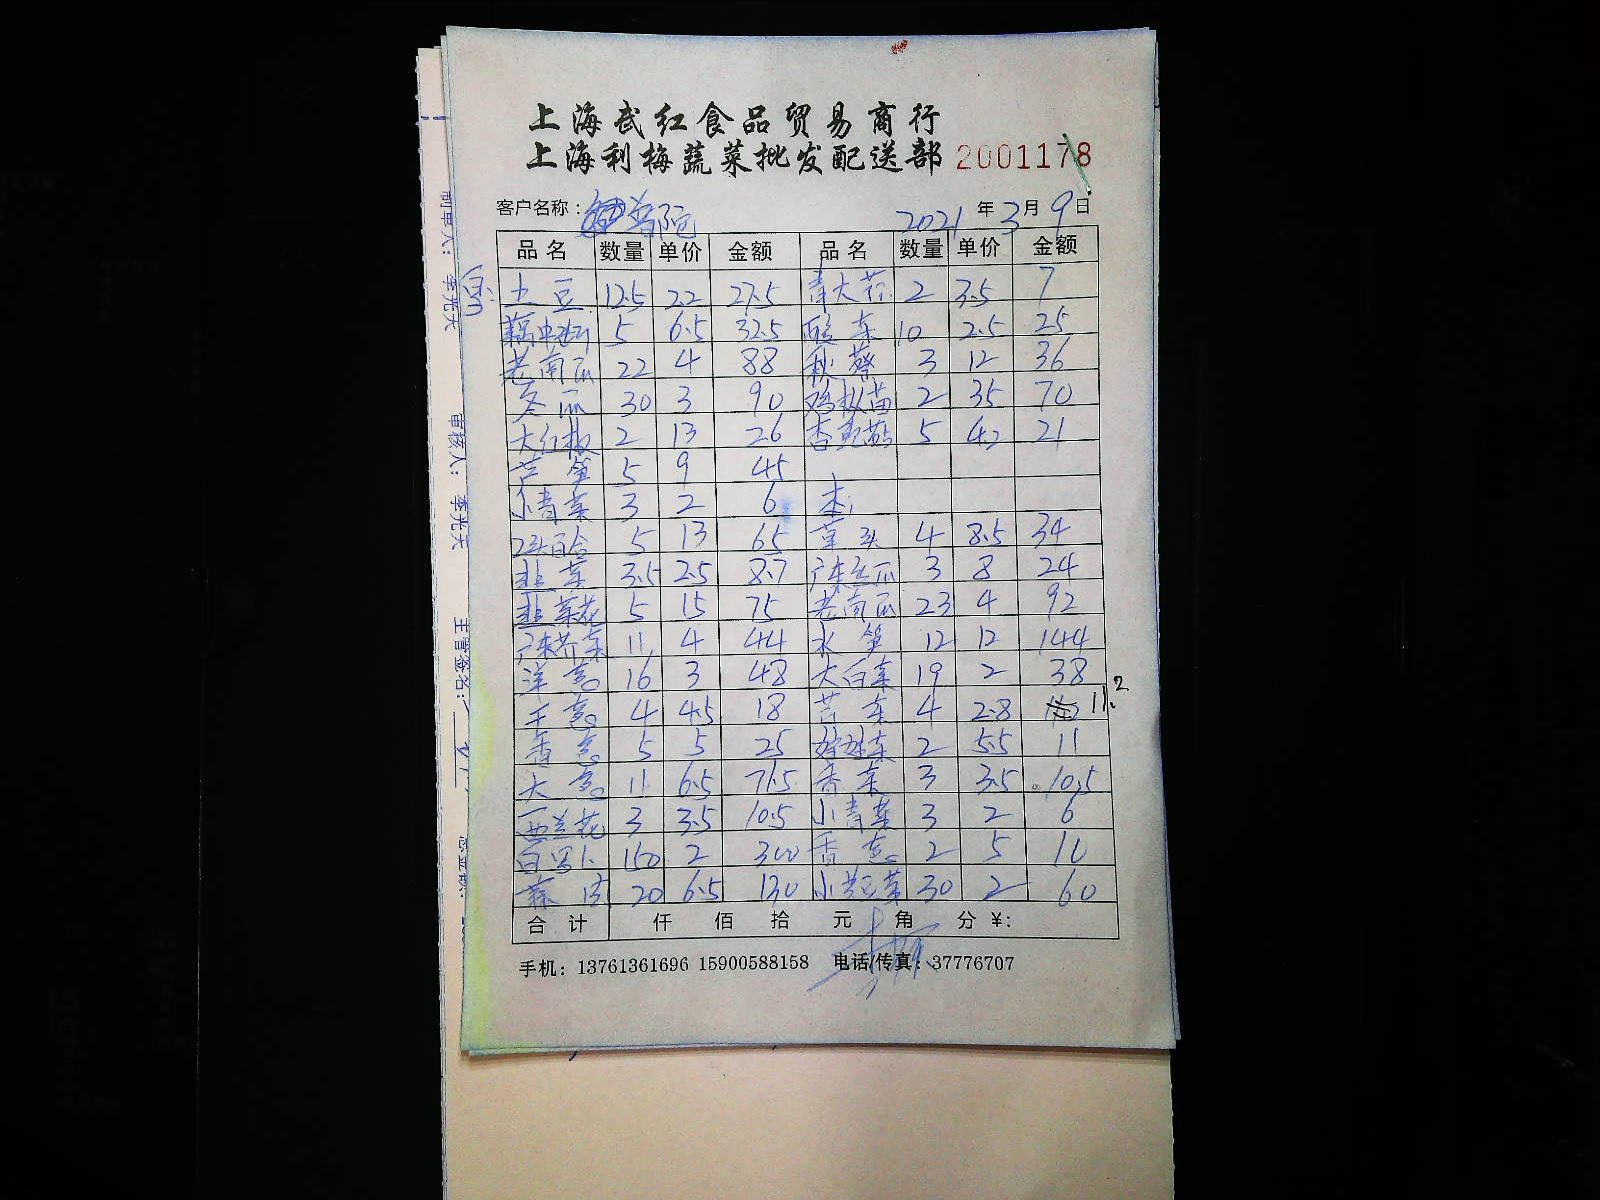 上海武红食品贸易商行
上海利梅蔬菜批发配送部 2001178
客户名称: 普陀 2021年3月9日
品名 数量 单价 金额 品名 数量 单价 金额
土豆 12.5 2.2 27.5 青大蒜 2 3.5 7
藕中断 5 6.5 32.5 酸菜 10 2.5 25
老南瓜 22 4 88 秋葵 3 12 36
冬瓜 30 3 90 鸡枞菌 2 35 70
大红椒 2 13 26 杏鲍菇 5 4.2 21
芦笋 5 9 45
小青菜 3 2 6
2头百合 5 13 65 草头 4 8.5 34
韭菜 3.5 2.5 8.7 广东丝瓜 3 8 24
韭菜花 5 15 75 老南瓜 23 4 92
广东芥菜 11 4 44 水笋 12 12 144
洋葱 16 3 48 大白菜 19 2 38
干葱 4 4.5 18 芹菜 4 2.8 11.2
香葱 5 5 25 2 5.5 11
大葱 11 6.5 71.5 香菜 3 3.5 10.5
西兰花 3 3.5 10.5 小青菜 3 2 6
白萝卜 150 2 300 香葱 2 5 10
蒜肉 20 6.5 130 小黄豆芽 30 2 60
合计 仟 佰 拾 元 角 分 ¥:
手机: 13761361696 15900588158 电话/传真: 37776707
制单人: 李光天
审核人: 李光天
主管签名: